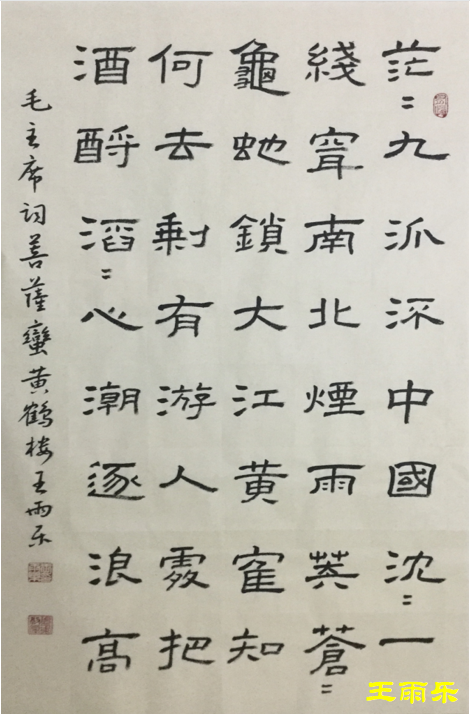 茫〻九派流中國沈〻一
綫穿南北煙雨莽蒼〻
龜虵鎖大江黄隺知
何去剩有游人處把
酒酹滔〻心潮逐浪高
毛主席词菩薩蠻黄鶴楼王雨乐
王雨乐